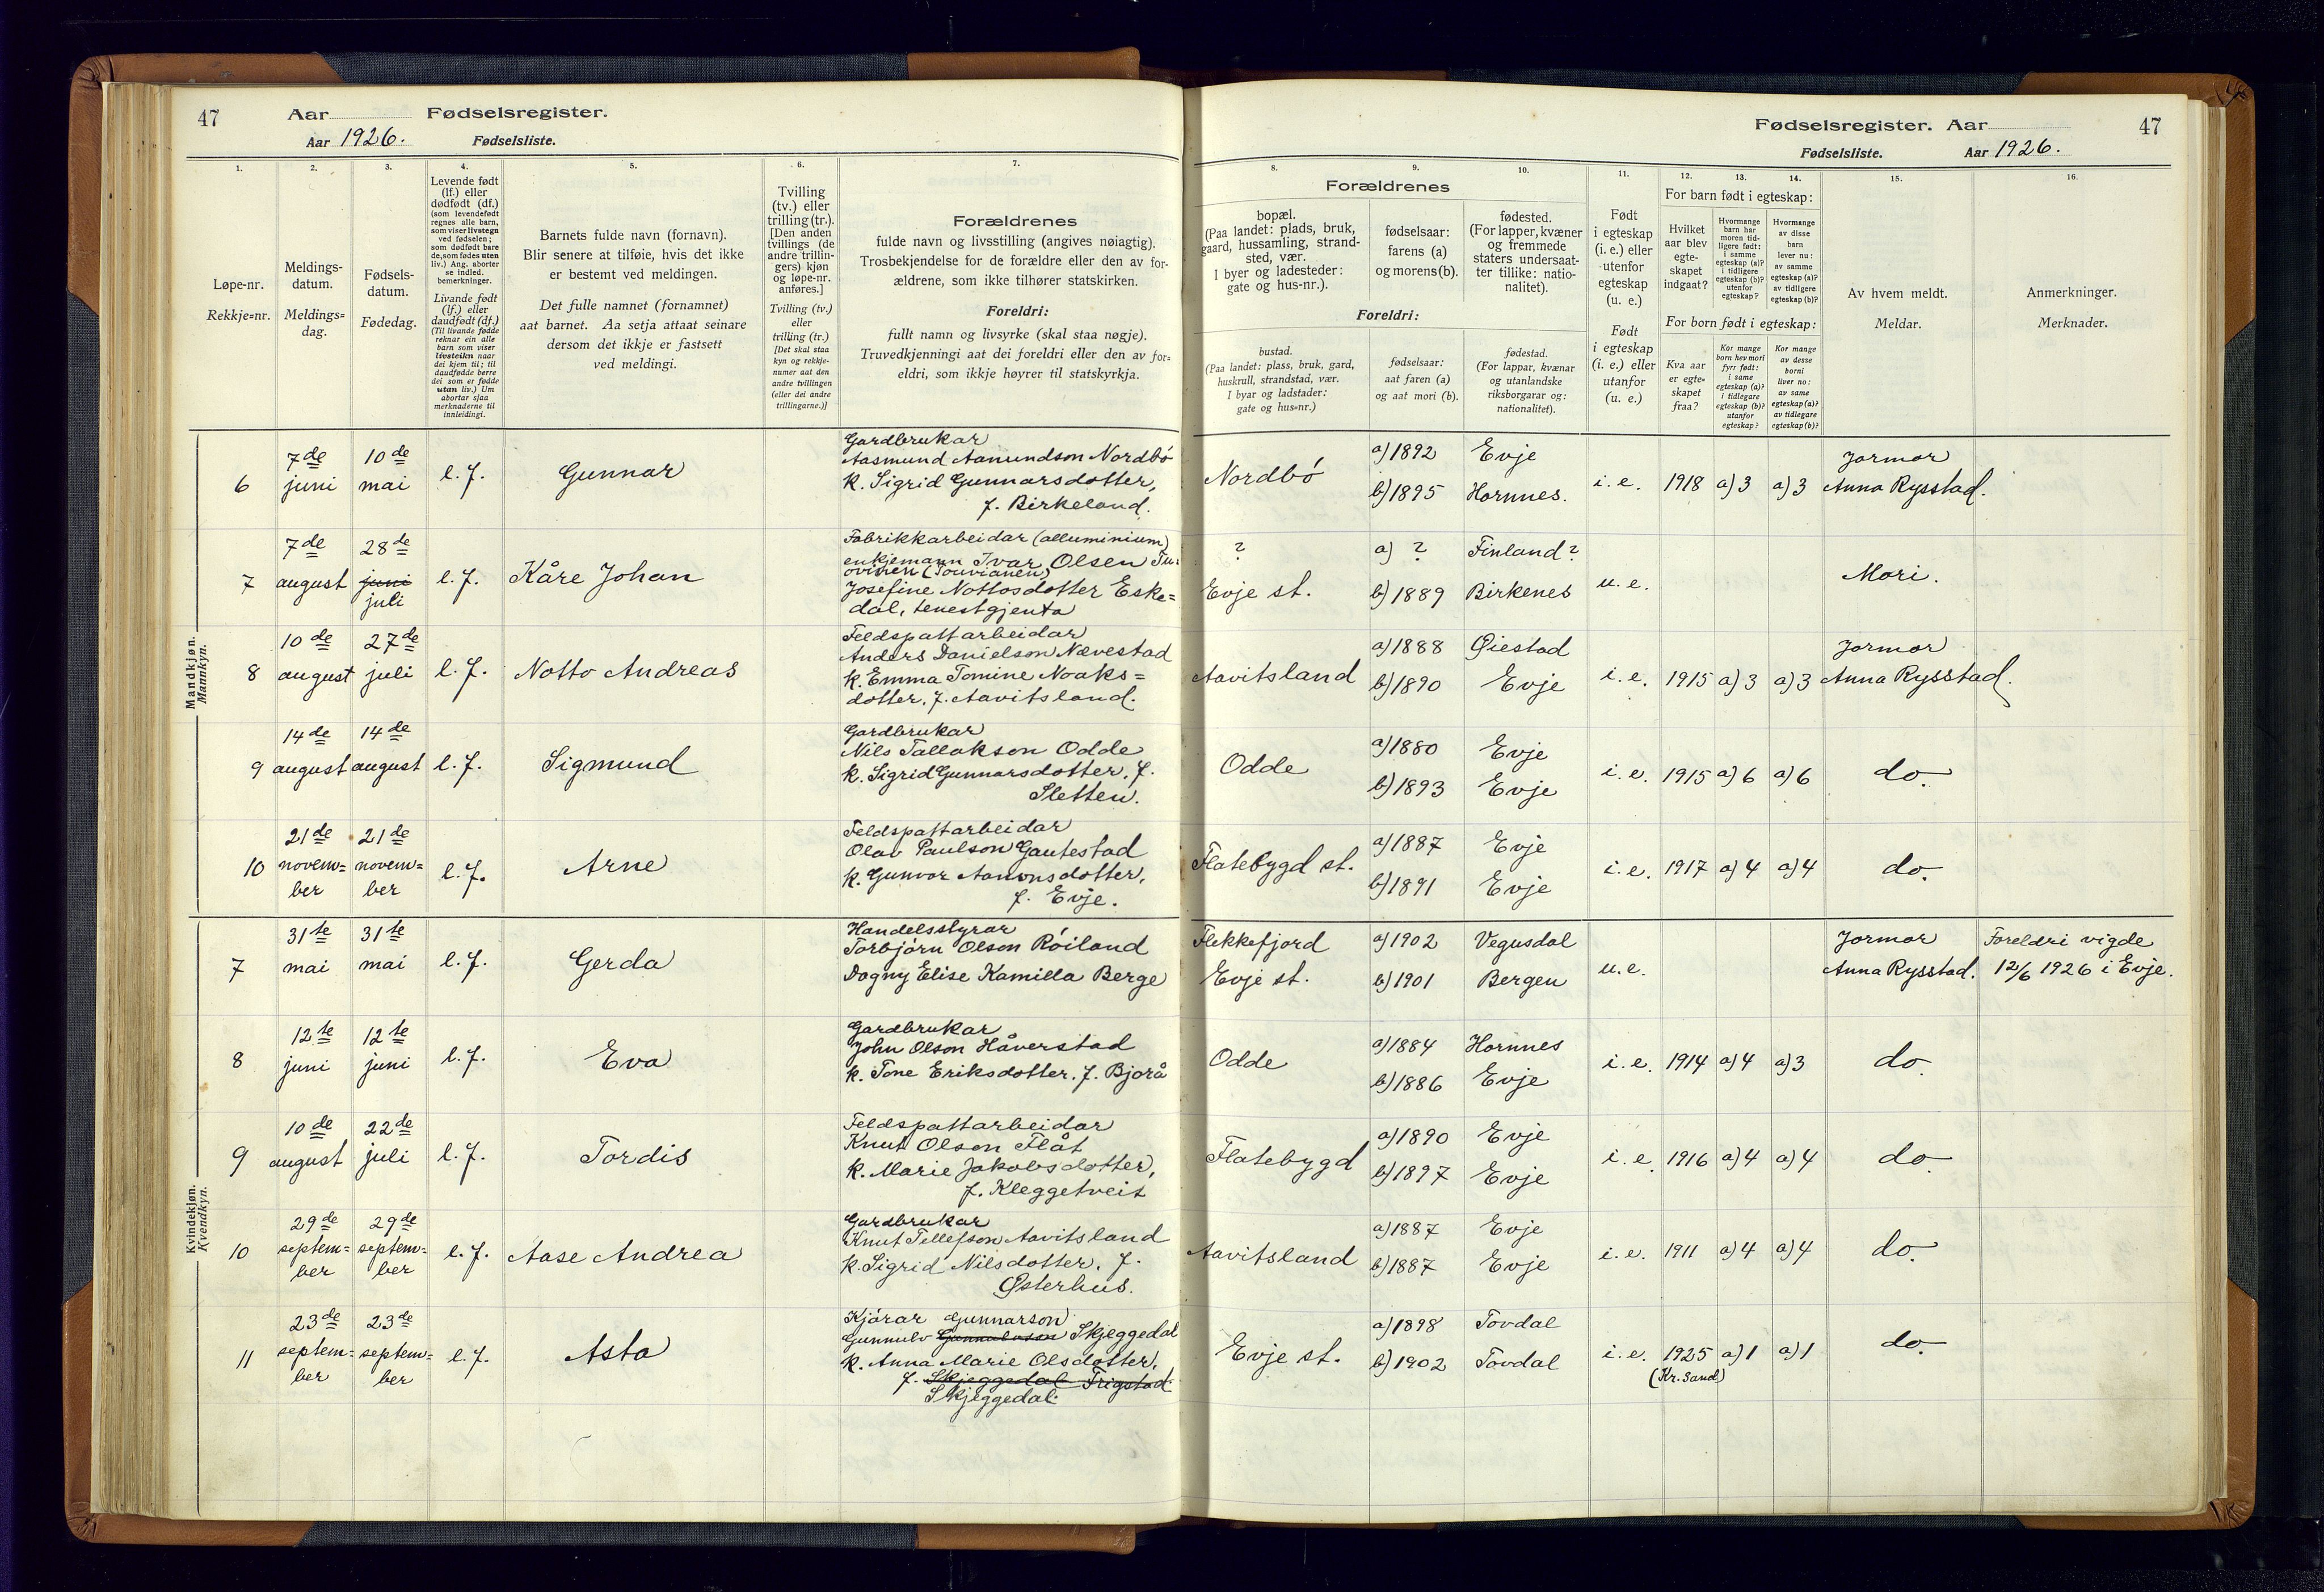 47 Aar Fødselsregister.
Aar 1926. Fødselsliste.
Fødselsregister. Aar 47
Fødselsliste. Aar 1926.
1. 2. 3. 4. 5. 6. 7.
Løpe-nr.
Rekkje=nr.
Meldings-
datum.
Meldings=
dag.
Fødsels-
datum.
Fødedag.
Levende født
(lf.) eller
dødfødt (df.)
(som levendefødt
regnes alle barn,
som viser livstegn
ved fødselen;
som dødfødt bare
de, som fødes uten
liv.) Ang. aborter
se indled.
bemerkninger.
Livande født
(lf.) eller
daudfødt (df.)
(Til livande fødde
reknar ein alle
barn som viser
livsteikn naar
dei kjem til; til
daudfødde berre
dei som er fødde
utan liv.) Um
abortar sjaa
merknaderne til
innleidingi.
Barnets fulde navn (fornavn).
Blir senere at tilføie, hvis det ikke
er bestemt ved meldingen.
Det fulle namnet (fornamnet)
aat barnet. Aa setja attaat seinare
dersom det ikkje er fastsett
ved meldingi.
Tvilling
(tv.) eller
trilling (tr.).
[Den anden
tvillings (de
andre trillin-
gers) kjøn
og løpe-nr.
anføres.]
Tvilling (tv.)
eller
trilling (tr.)
[Det skal staa
kyn og rekkje-
numer aat den
andre tvillingen
(eller dei andre
trillingarne.)]
Forældrenes
fulde navn og livsstilling (angives nøiagtig).
Trosbekjendelse for de forældre eller den av for-
ældrene, som ikke tilhører statskirken.
Foreldri:
fullt namn og livsyrke (skal staa nøgje).
Truvedkjenningi aat dei foreldri eller den av for=
eldri, som ikkje høyrer til statskyrkja.
8. 9. 10. 11. 12. 13. 14. 15. 16.
Forældrenes
bopæl.
(Paa landet: plads, bruk,
gaard, hussamling, strand-
sted, vær.
I byer og ladesteder:
gate og hus-nr.).
fødselsaar:
farens (a)
og morens (b).
fødested.
(For lapper, kvæner
og fremmede
staters undersaat-
ter tillike: natio-
nalitet).
Foreldri:
bustad.
(Paa landet: plass, bruk, gard,
huskrull, strandstad, vær.
I byar og ladstader:
gate og hus=nr.)
fødselsaar:
aat faren (a)
og aat mori (b).
fødestad.
(For lappar, kvænar
og utanlandske
riksborgarar og:
nationalitet).
Født
i egteskap
(i. e.) eller
utenfor
egteskap
(u. e.)
Født
i egteskap
(i. e.) eller
utanfor
(u. e.)
For barn født i egteskap:
Hvilket
aar blev
egte-
skapet
indgaat?
Hvormange
barn har
moren tid-
ligere født:
i samme
egteskap (a)?
i tidligere
egteskap (b)?
utenfor
egteskap?
Hvormange
av disse
barn
lever nu:
av samme
egteskap (a)?
av tidligere
egteskap (b)?
For born født i egteskap:
Kva aar
er egte=
skapet
fraa?
Kor mange
born hev mori
fyrr født:
i same
egteskap (a)?
i tidlegare
egteskap (b)?
utanfor
egteskap?
Kor mange
av desse
borni
liver no:
av same
egteskap (a)?
av tidlegare
egteskap (b)?
Av hvem meldt.
Meldar.
Anmerkninger.
Merknader.
Mandkjøn.
Mannkyn.
6
7de
juni
10de
mai
l. f.
Gunnar
Gardbrukar
Aasmund Aanundson Nordbó
k. Sigrid Gunnarsdotter,
f. Birkeland.
Nordbó
a) 1892 Evje
b) 1895 Hornnes.
i. e. 1918 a) 3 a) 3
Jormor
Anna Rysstad.
7
7de
august
28de
juni
juli
l. f.
Kåre Johan
Fabrikkarbeidar (alluminium)
enkjemann Ivar Olsen Tu-
ovinen (Touvianen)
Josefine Nottosdotter Eske=
dal, tenestgjenta
?
Evje st.
a) ? Finland?
b) 1889 Birkenes
u. e.
Mori.
8
10de
august
27de
juli
l. f.
Notto Andreas
Feldspattarbeidar
Anders Danielson Nævestad
k. Emma Tomine Noaks=
dotter, f. Aavitsland.
Aavitsland
a) 1888 Øiestad
b) 1890 Evje
i. e. 1915 a) 3 a) 3
Jormor
Anna Rysstad.
9
14de
august
14de
august
l. f.
Sigmund
Gardbrukar
Nils Tallakson Odde
k. Sigrid Gunnarsdotter, f.
Sletten.
Odde
a) 1880 Evje
b) 1893 Evje
i. e. 1915 a) 6 a) 6
do.
10
21de
novem=
ber
21de
novem=
ber
l. f.
Arne
Feldspattarbeidar
Olav Paulson Gautestad
k. Gunvor Aanonsdotter,
f. Evje.
Flatebygd st.
a) 1887 Evje
b) 1891 Evje
i. e. 1917 a) 4 a) 4
do.
Kvindekjøn.
Kvendkyn.
7
31te
mai
31te
mai
l. f.
Gerda
Handelsstyrar
Torbjórn Olson Róiland
Dagny Elise Kamilla Berge
Flekkefjord
Evje st.
a) 1902 Vegusdal
b) 1901 Bergen
u. e.
Jormor
Anna Rysstad.
Foreldri vigde
12/6 1926 i Evje.
8
12te
juni
12te
juni
l. f.
Eva
Gardbrukar
John Olson Håverstad
k. Tone Eriksdotter, f. Bjorå
Odde
a) 1884 Hornnes
b) 1886 Evje
i. e. 1914 a) 4 a) 3
do.
9
10de
august
22de
juli
l. f.
Tordis
Feldspattarbeidar
Knut Olson Flåt
k. Marie Jakobsdotter,
f. Kleggetveit
Flatebygd
a) 1890 Evje
b) 1897 Evje
i. e. 1916 a) 4 a) 4
do.
10
29de
septem=
ber
29de
septem=
ber
l. f.
Aase Andrea
Gardbrukar
Knut Tellefson Aavitsland
k. Sigrid Nilsdotter, f.
Østerhus.
Aavitsland
a) 1887 Evje
b) 1887 Evje
i. e. 1911 a) 4 a) 4
do.
11
23de
septem=
ber
23de
septem=
ber
l. f.
Asta
Kjórar Gunnarson
Gunnulv Gunnulvson Skjeggedal
k. Anna Marie Olsdotter,
f. Skjeggedal Trigstad
Skjeggedal.
Evje st.
a) 1898 Tovdal
b) 1902 Tovdal
i. e. 1925 a) 1 a) 1
(Kr. Sand)
do.